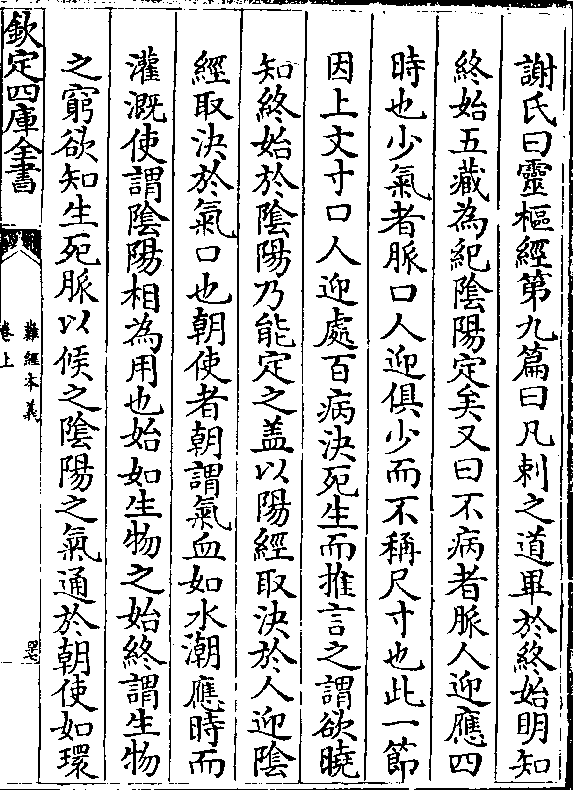 謝氏曰靈樞經第九篇曰凡刺之道畢於終始明知
終始五藏為紀陰陽定矣又曰不病者脈人迎應四
時也少氣者脈口人迎俱少而不稱尺寸也此一節
因上文寸口人迎處百病決死生而推言之謂欲曉
知終始於陰陽乃能定之盖以陽經取決於人迎陰
經取決於氣口也朝使者朝謂氣血如水潮應時而
灌溉使謂陰陽相為用也始如生物之始終謂生物
之窮欲知生死脈以候之陰陽之氣通於朝使如環
欽定四庫全書
難經本義
卷上